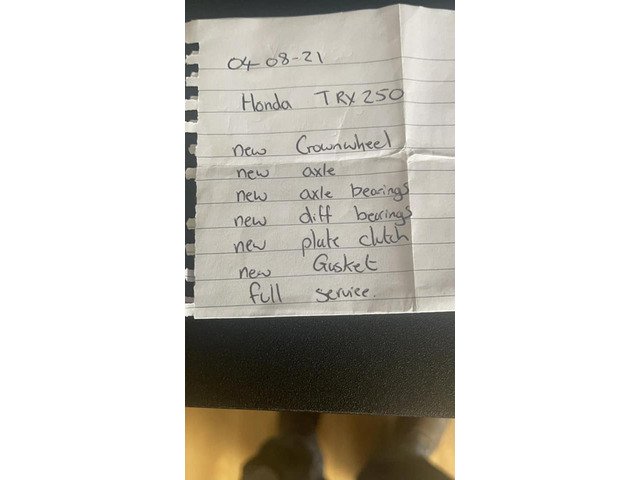 04-08-21
Honda TRX 250
new Crownwheel
new axle
new axle bearings
new diff bearings
new plate clutch
new Gasket
full service.